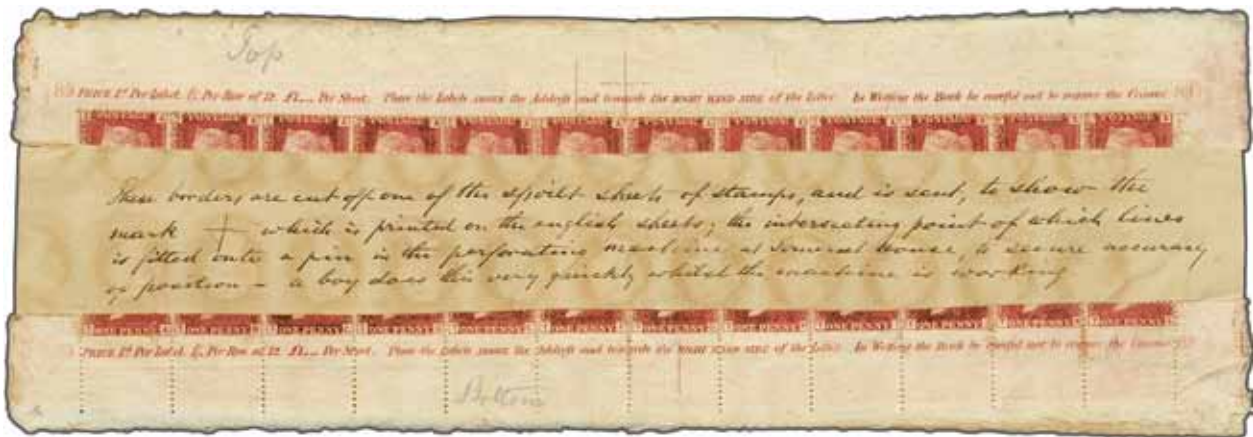 Top
PRICE 1d Per Label. 1/- Per Row of 12. £1.... Per Sheet. Place the Labels ABOVE the Address and towards the RIGHT HAND SIDE of the Letter. In Wetting the Back be careful not to remove the Cement
These borders are cut off one of the spoilt sheets of stamps, and is sent, to show the
mark + which is printed on the english sheets; the intersecting point of which lines
is fitted onto a pin in the perforating machine at Somerset House, to secure accuracy
of position – a boy does this very quickly whilst the machine is working
ONE PENNY ONE PENNY ONE PENNY ONE PENNY ONE PENNY ONE PENNY ONE PENNY ONE PENNY ONE PENNY ONE PENNY ONE PENNY ONE PENNY
PRICE 1d Per Label. 1/- Per Row of 12. £1.... Per Sheet. Place the Labels ABOVE the Address and towards the RIGHT HAND SIDE of the Letter. In Wetting the Back be careful not to remove the Cement
Bottom